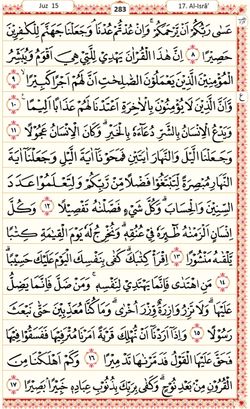 Juz 15 283 17. Al-Isrā'
عَسَىٰ رَبُّكُمْ أَنْ يَرْحَمَكُمْ ۚ وَإِنْ عُدْتُمْ عُدْنَا ۘ وَجَعَلْنَا جَهَنَّمَ لِلْكٰفِرِيْنَ
حَصِيْرًا ﴿٨﴾ إِنَّ هٰذَا الْقُرْاٰنَ يَهْدِيْ لِلَّتِيْ هِيَ أَقْوَمُ وَيُبَشِّرُ
الْمُؤْمِنِيْنَ الَّذِيْنَ يَعْمَلُوْنَ الصّٰلِحٰتِ أَنَّ لَهُمْ أَجْرًا كَبِيْرًا ﴿٩﴾
وَأَنَّ الَّذِيْنَ لَا يُؤْمِنُوْنَ بِالْاٰخِرَةِ أَعْتَدْنَا لَهُمْ عَذَابًا أَلِيْمًا ﴿١٠﴾
وَيَدْعُ الْإِنْسَانُ بِالشَّرِّ دُعَاۤءَهُ بِالْخَيْرِ ۗ وَكَانَ الْإِنْسَانُ عَجُوْلًا ﴿١١﴾
وَجَعَلْنَا الَّيْلَ وَالنَّهَارَ اٰيَتَيْنِ فَمَحَوْنَا اٰيَةَ الَّيْلِ وَجَعَلْنَا اٰيَةَ
النَّهَارِ مُبْصِرَةً لِّتَبْتَغُوْا فَضْلًا مِّنْ رَّبِّكُمْ وَلِتَعْلَمُوْا عَدَدَ
السِّنِيْنَ وَالْحِسَابَ ۗ وَكُلَّ شَيْءٍ فَصَّلْنٰهُ تَفْصِيْلًا ﴿١٢﴾ وَكُلَّ
إِنْسَانٍ أَلْزَمْنٰهُ طٰۤئِرَهُ فِيْ عُنُقِهٖ ۗ وَنُخْرِجُ لَهُ يَوْمَ الْقِيٰمَةِ كِتٰبًا
يَّلْقٰىهُ مَنْشُوْرًا ﴿١٣﴾ اِقْرَأْ كِتٰبَكَ ۗ كَفٰى بِنَفْسِكَ الْيَوْمَ عَلَيْكَ حَسِيْبًا ۗ
﴿١٤﴾ مَنِ اهْتَدٰى فَإِنَّمَا يَهْتَدِيْ لِنَفْسِهٖ ۚ وَمَنْ ضَلَّ فَإِنَّمَا يَضِلُّ
عَلَيْهَا ۗ وَلَا تَزِرُ وَازِرَةٌ وِّزْرَ أُخْرٰى ۗ وَمَا كُنَّا مُعَذِّبِيْنَ حَتّٰى نَبْعَثَ
رَسُوْلًا ﴿١٥﴾ وَإِذَا أَرَدْنَا أَنْ نُّهْلِكَ قَرْيَةً أَمَرْنَا مُتْرَفِيْهَا فَفَسَقُوْا فِيْهَا
فَحَقَّ عَلَيْهَا الْقَوْلُ فَدَمَّرْنٰهَا تَدْمِيْرًا ﴿١٦﴾ وَكَمْ أَهْلَكْنَا مِنَ
الْقُرُوْنِ مِنْ بَعْدِ نُوْحٍ ۗ وَكَفٰى بِرَبِّكَ بِذُنُوْبِ عِبَادِهٖ خَبِيْرًا بَصِيْرًا ﴿١٧﴾